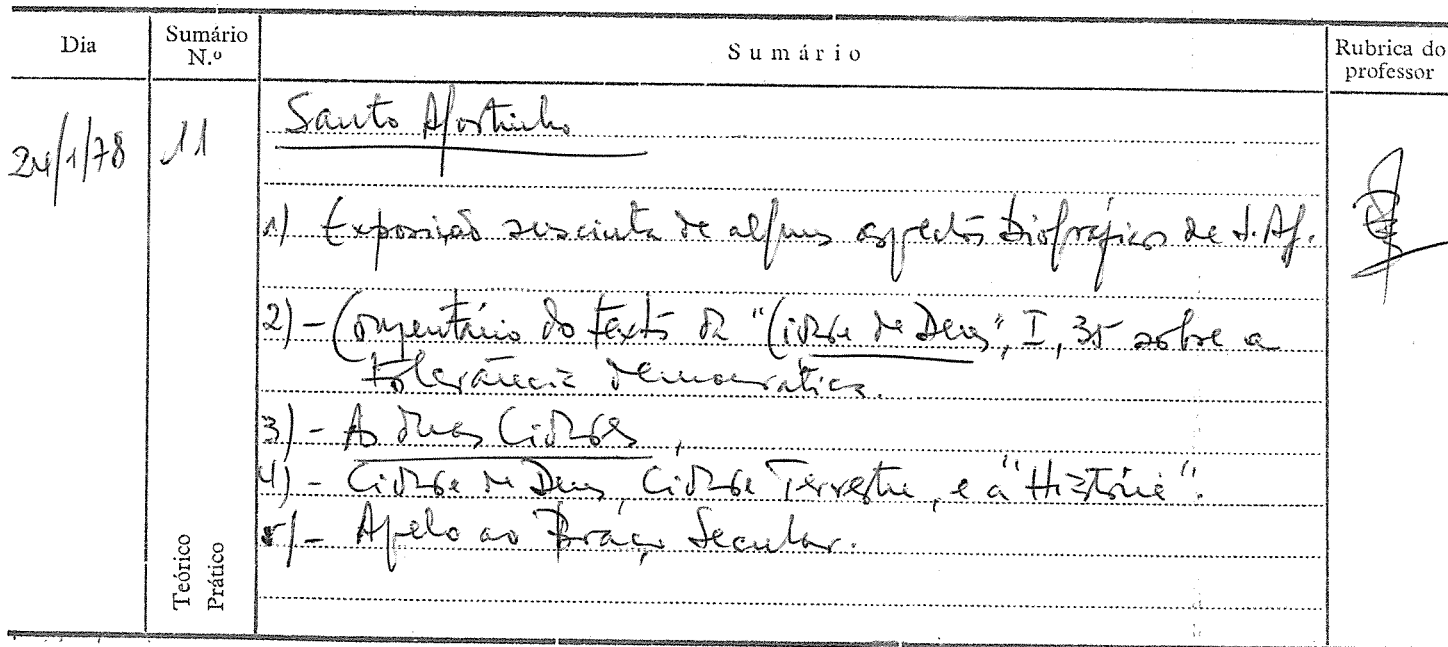 Dia
Sumário N.º
Sumário
Rubrica do professor
24/1/78
11
Santo Agostinho
1) Exposição suscinta de alguns aspectos biográficos de S. Ag.
2) - Comentário do texto da "Cidade de Deus", I, 35 sobre a
tolerância democrática.
3) - As duas Cidades,
4) - Cidade de Deus, Cidade Terrestre, e a "História".
5) - Apelo ao Braço Secular.
Teórico
Prático